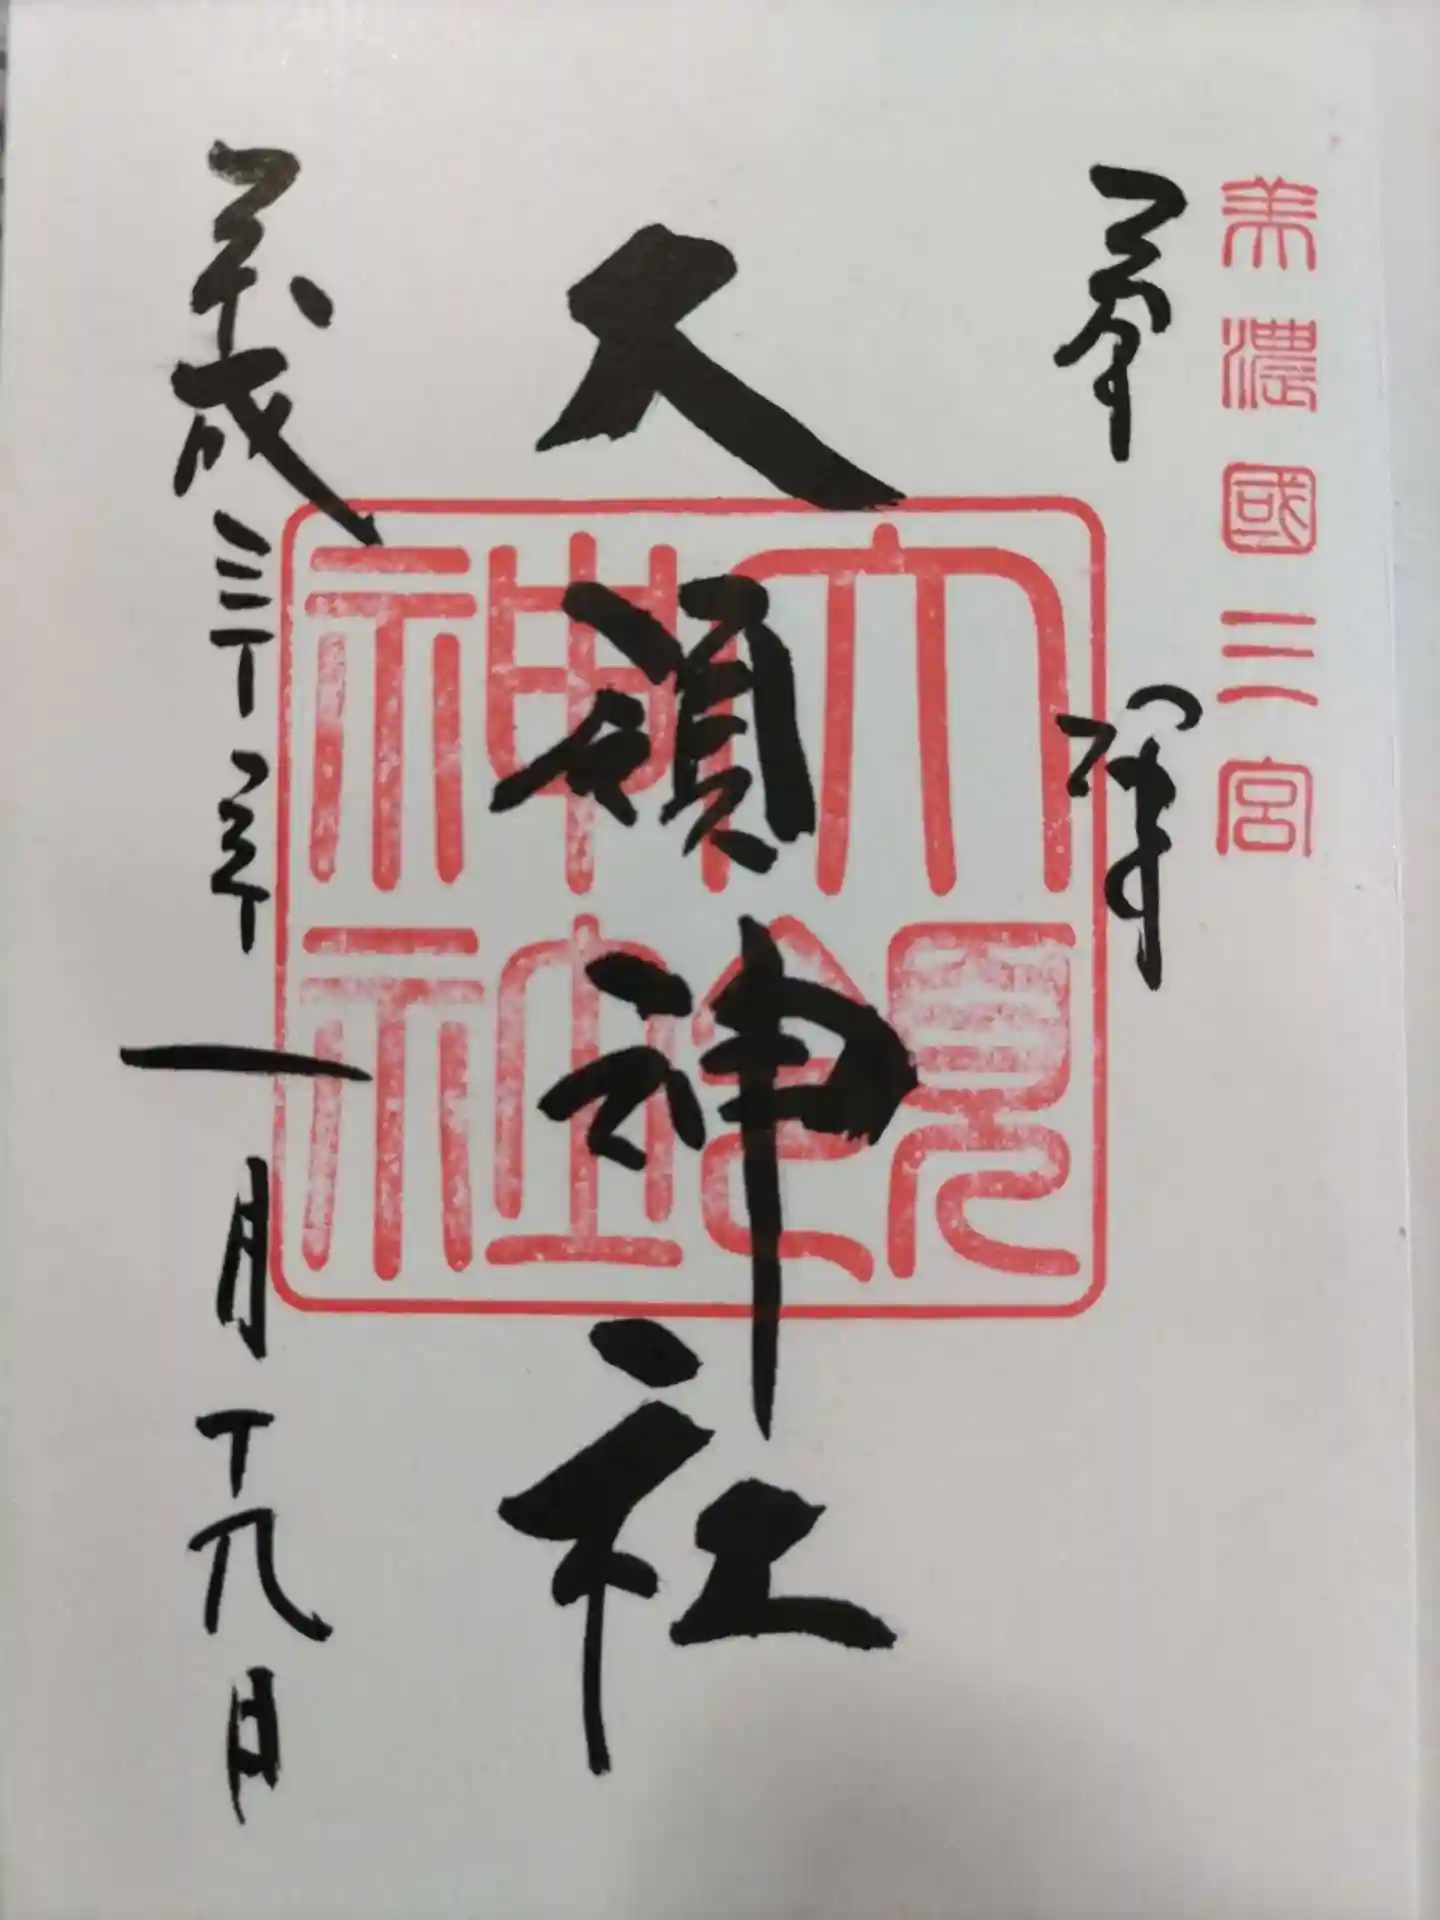 美濃國三宮
奉拝
大領神社
大領神社
平成三十年一月十九日